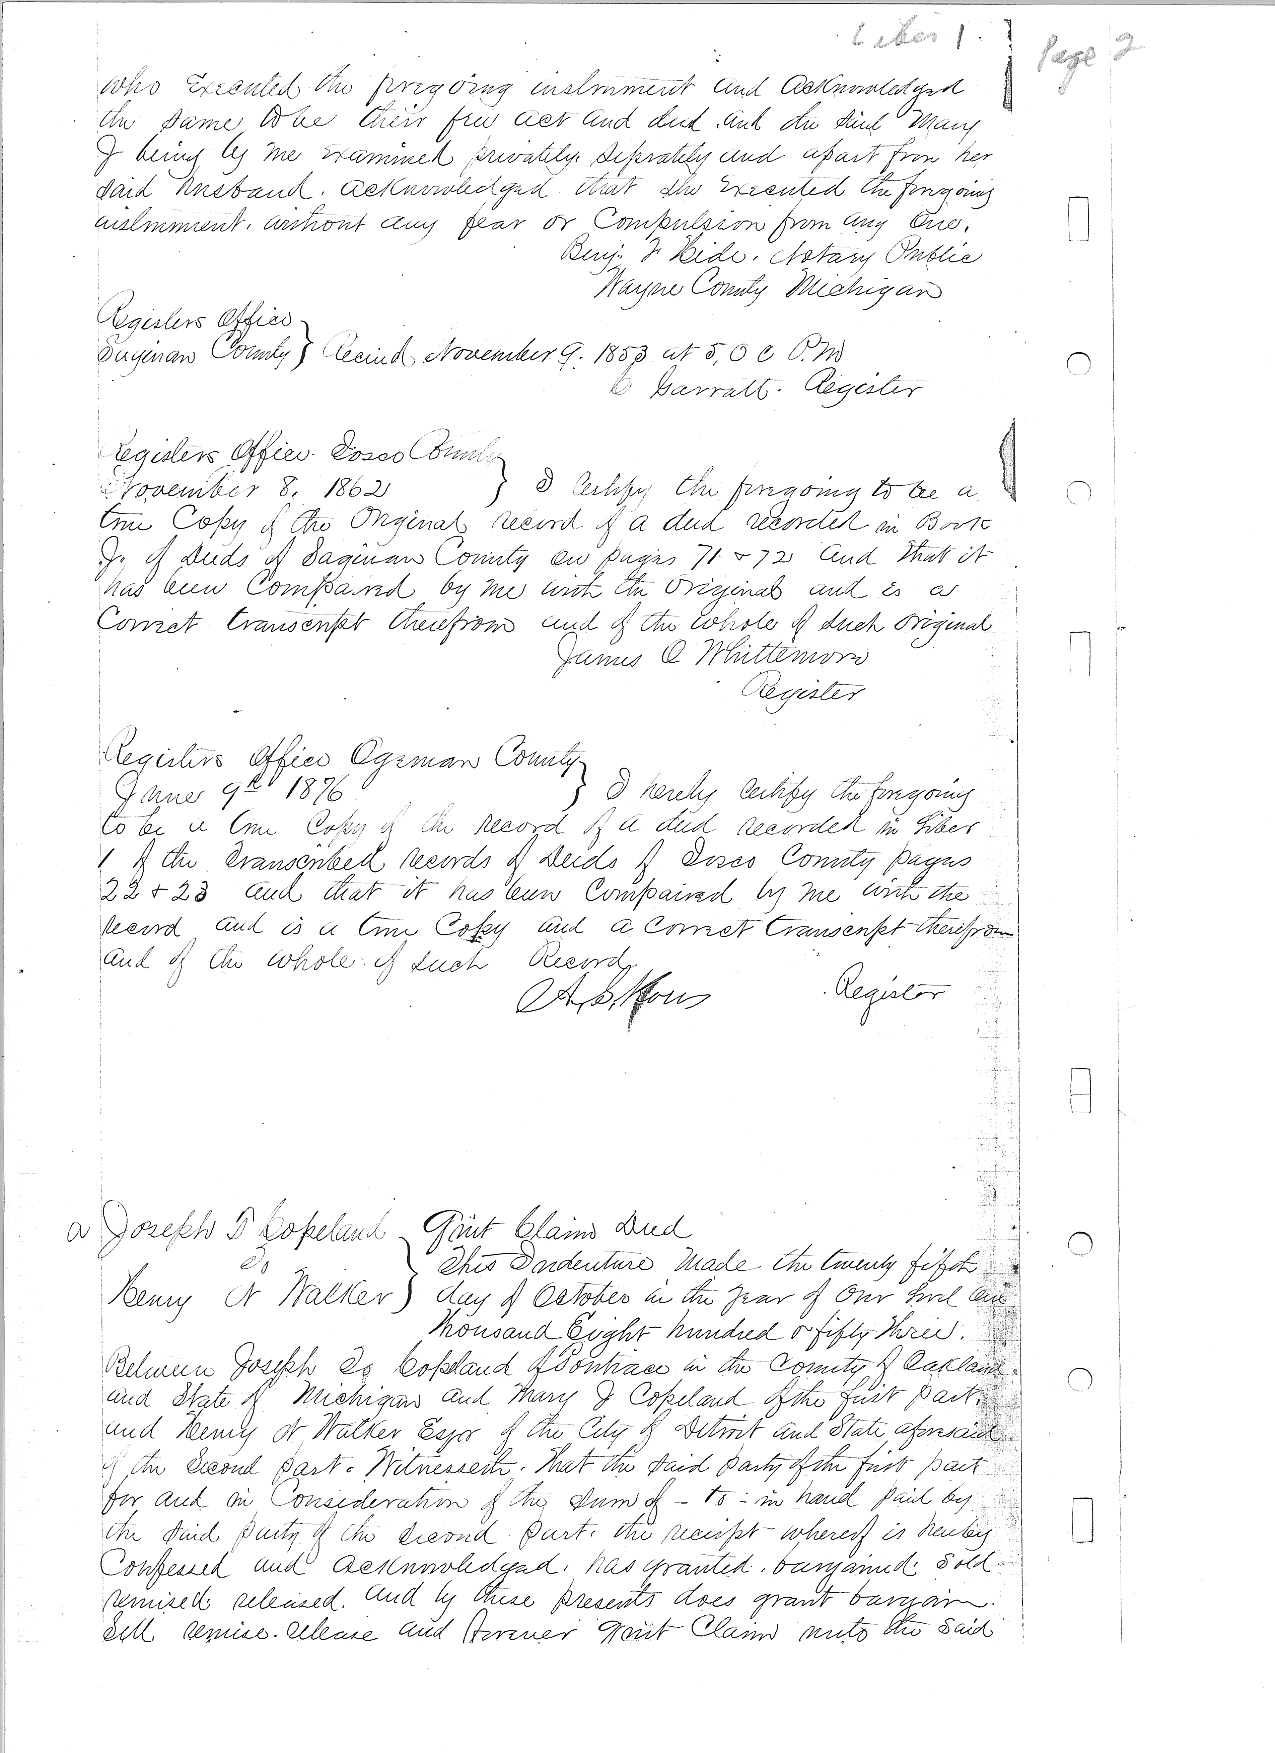 Liber 1. Page 2
who Executed the foregoing instrument and acknowledged
the same to be their free act and deed. and the said Mary
J being by me examined privately. Seprately and apart from her
said husband. acknowledged that she Executed the foregoing
instrument. without any fear or Compulsion from any One.
Benj. F Hide. Notary Public
Wayne County Michigan
Registers Office
Saginaw County } Recieved November 9. 1853 at 5, O C P.M
C Garratt. Register
Registers Office. Iosco County
November 8. 1862 } I Certify the foregoing to be a
true Copy of the Original record of a deed recorded in Book
J. of Deeds of Saginaw County on pages 71 & 72 and that it
has been Compaired by me with the Original and is a
Correct transcript therefrom and of the whole of such original
James O Whittemore
Register
Registers Office Ogemaw County
June 9th 1876 } I herely Certify the foregoing
to be a true Copy of the record of a deed recorded in Liber
1 of the transcribed records of Deeds of Iosco County pages
22 & 23 and that it has been Compaired by me with the
record and is a true Copy and a Correct transcript therefrom
and of the whole of such Record
Register
a Joseph T Copeland } Quit Claim Deed
To This Indenture Made the twenty fifth
Henry N Walker } day of October in the year of Our Lord One
thousand Eight hundred & fifty three.
Between Joseph To Copeland of Pontiac in the County of Oakland
and State of Michigan and Mary J Copeland of the first part.
and Henry N Walker Esqr of the City of Detroit and State aforesaid
of the Second part. Witnesseth. That the said party of the first part
for and in Consideration of the Sum of - to - in hand paid by
the said party of the second part. the receipt whereof is hereby
Confessed and acknowledged. has granted. bargained. Sold
remised. released. and by these presents does grant bargain.
Sell remise. release and forever Quit Claim unto the Said